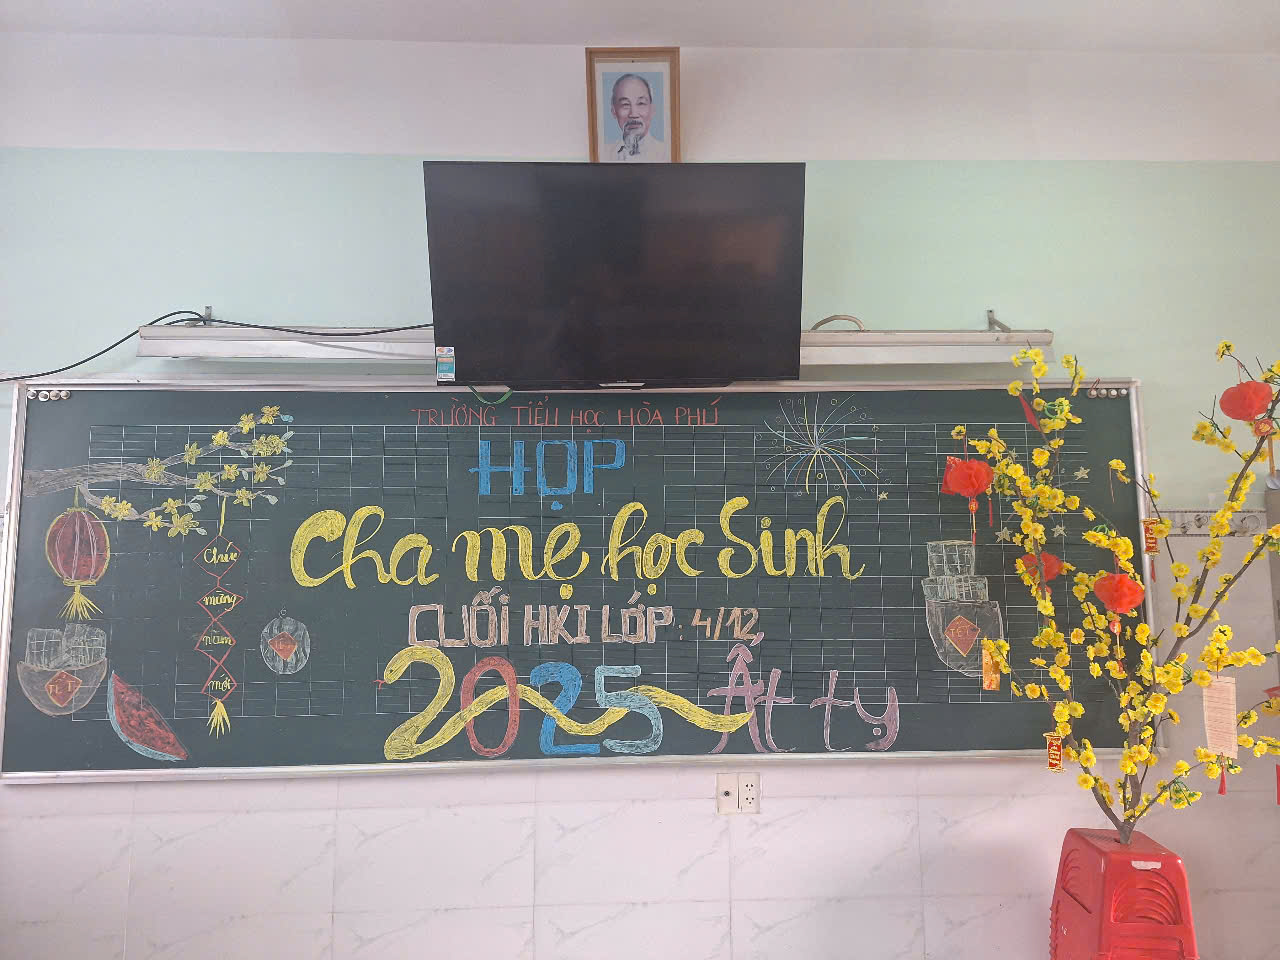 TRƯỜNG TIỂU HỌC HÒA PHÚ
HỌP
Cha mẹ học Sinh
CUỐI HKI LỚP: 4/12
2025 Ất tỵ
Chúc
mừng
năm
mới
TẾT
TẾT
TẾT